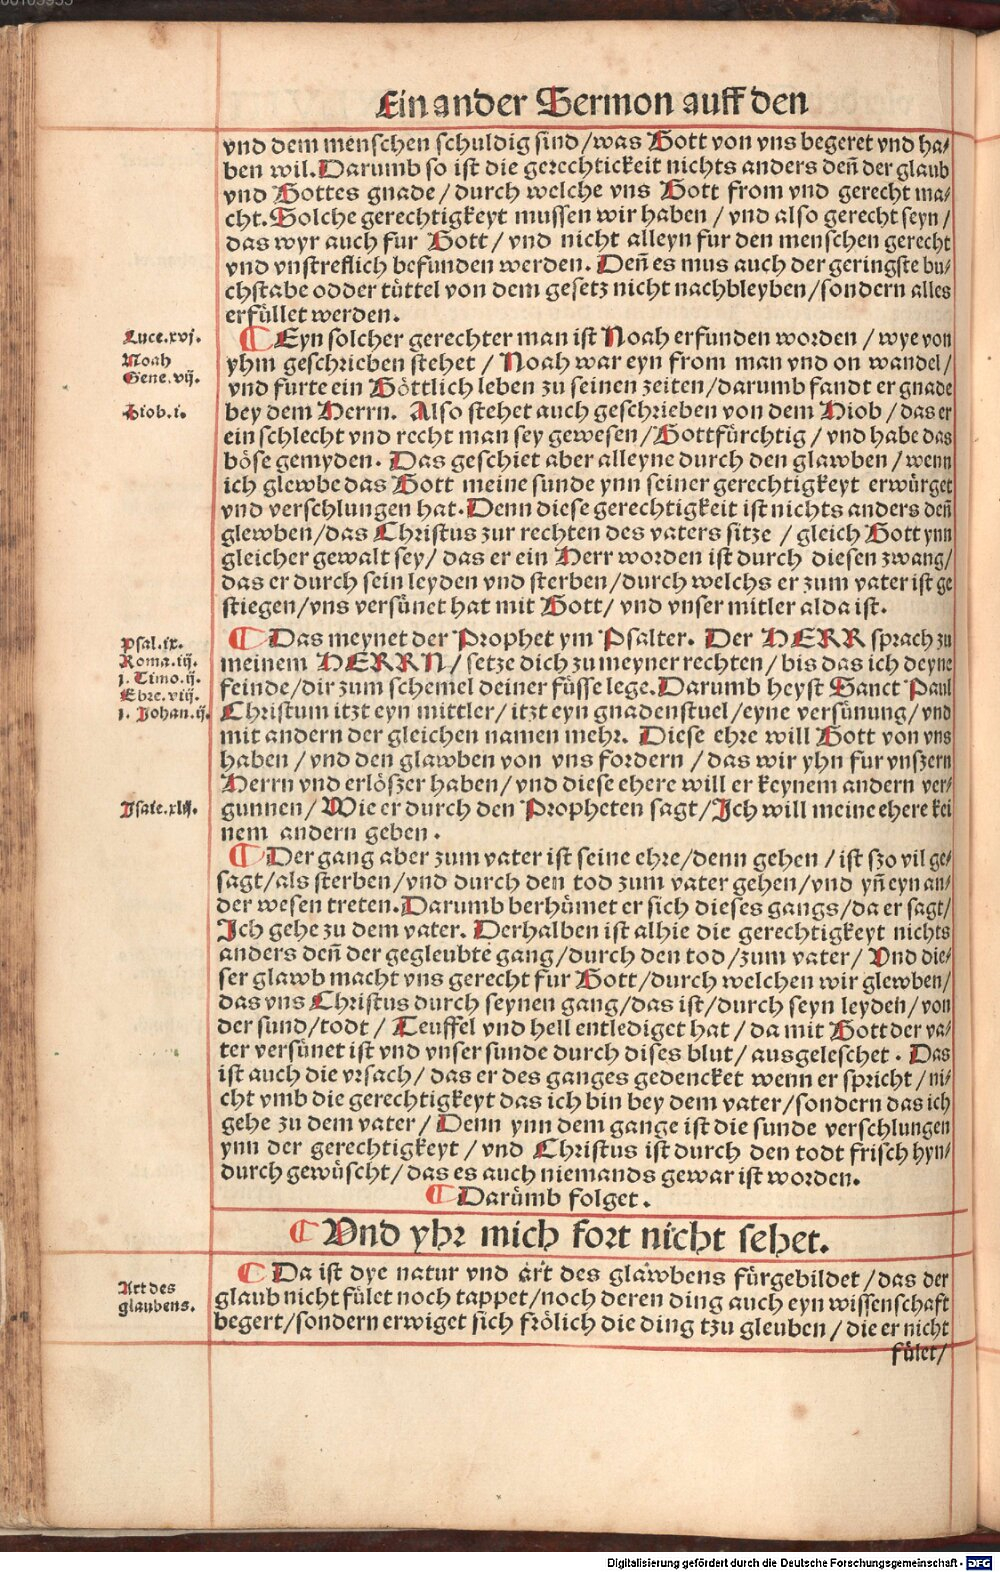 Ein ander Sermon auff den
vnd dem menschen schuldig sind/was Gott von vns begeret vnd ha/
ben wil. Darumb so ist die gerechtickeit nichts anders deñ der glaub
vnd Gottes gnade/durch welche vns Gott from vnd gerecht ma/
cht. Solche gerechtigkeyt mussen wir haben/vnd also gerecht seyn/
das wyr auch fur Gott/vnd nicht alleyn fur den menschen gerecht
vnd vnstreflich befunden werden. Deñ es mus auch der geringste bu/
chstabe odder tüttel von dem gesetz nicht nachbleyben/sondern alles
erfüllet werden.
Luce.xvj.
Noah
Gene.vij.
Hiob.i.
Eyn solcher gerechter man ist Noah erfunden worden/wye von
yhm geschrieben stehet/Noah war eyn from man vnd on wandel/
vnd furte ein Göttlich leben zu seinen zeiten/darumb fandt er gnade
bey dem Herrn. Also stehet auch geschrieben von dem Hiob/das er
ein schlecht vnd recht man sey gewesen/Gottfürchtig/vnd habe das
böse gemyden. Das geschiet aber alleyne durch den glawben/wenn
ich glewbe das Gott meine sunde ynn seiner gerechtigkeyt erwürget
vnd verschlungen hat. Denn diese gerechtigkeit ist nichts anders deñ
glewben/das Christus zur rechten des vaters sitze/gleich Gott ynn
gleicher gewalt sey/das er ein Herr worden ist durch diesen zwang/
das er durch sein leyden vnd sterben/durch welchs er zum vater ist ge
stiegen/vns versünet hat mit Gott/vnd vnser mitler alda ist.
Psal.ix.
Roma.iij.
j. Timo.ij.
Ebre.viij.
j. Johan.ij.
Das meynet der Prophet ym Psalter. Der HERR sprach zu
meinem HERRN/setze dich zu meyner rechten/bis das ich deyne
feinde/dir zum schemel deiner füsse lege. Darumb heyst Sanct Paul
Christum itzt eyn mittler/itzt eyn gnadenstuel/eyne versünung/vnd
mit andern der gleichen namen mehr. Diese ehre will Gott von vns
haben/vnd den glawben von vns fordern/das wir yhn fur vnszern
Herrn vnd erlöszer haben/vnd diese ehere will er keynem andern ver/
gunnen/Wie er durch den Propheten sagt/Ich will meine ehere kei
nem andern geben.
Jsaie.xlij.
Der gang aber zum vater ist seine ehre/denn gehen/ist szo vil ge/
sagt/als sterben/vnd durch den tod zum vater gehen/vnd yñ eyn an/
der wesen treten. Darumb berhümet er sich dieses gangs/da er sagt/
Ich gehe zu dem vater. Derhalben ist alhie die gerechtigkeyt nichts
anders deñ der gegleubte gang/durch den tod/zum vater/Vnd die/
ser glawb macht vns gerecht fur Gott/durch welchen wir glewben/
das vns Christus durch seynen gang/das ist/durch seyn leyden/von
der sund/todt/Teuffel vnd hell entlediget hat/da mit Gott der va/
ter versünet ist vnd vnser sunde durch dises blut/ausgeleschet. Das
ist auch die vrsach/das er des ganges gedencket wenn er spricht/ni/
cht vmb die gerechtigkeyt das ich bin bey dem vater/sondern das ich
gehe zu dem vater/Denn ynn dem gange ist die sunde verschlungen
ynn der gerechtigkeyt/vnd Christus ist durch den todt frisch hyn/
durch gewüscht/das es auch niemands gewar ist worden.
Darümb folget.
Vnd yhr mich fort nicht sehet.
Art des
glaubens.
Da ist dye natur vnd art des glawbens fürgebildet/das der
glaub nicht fület noch tappet/noch deren ding auch eyn wissenschaft
begert/sondern erwiget sich frölich die ding tzu gleuben/die er nicht
fület/
Digitalisierung gefördert durch die Deutsche Forschungsgemeinschaft - DFG